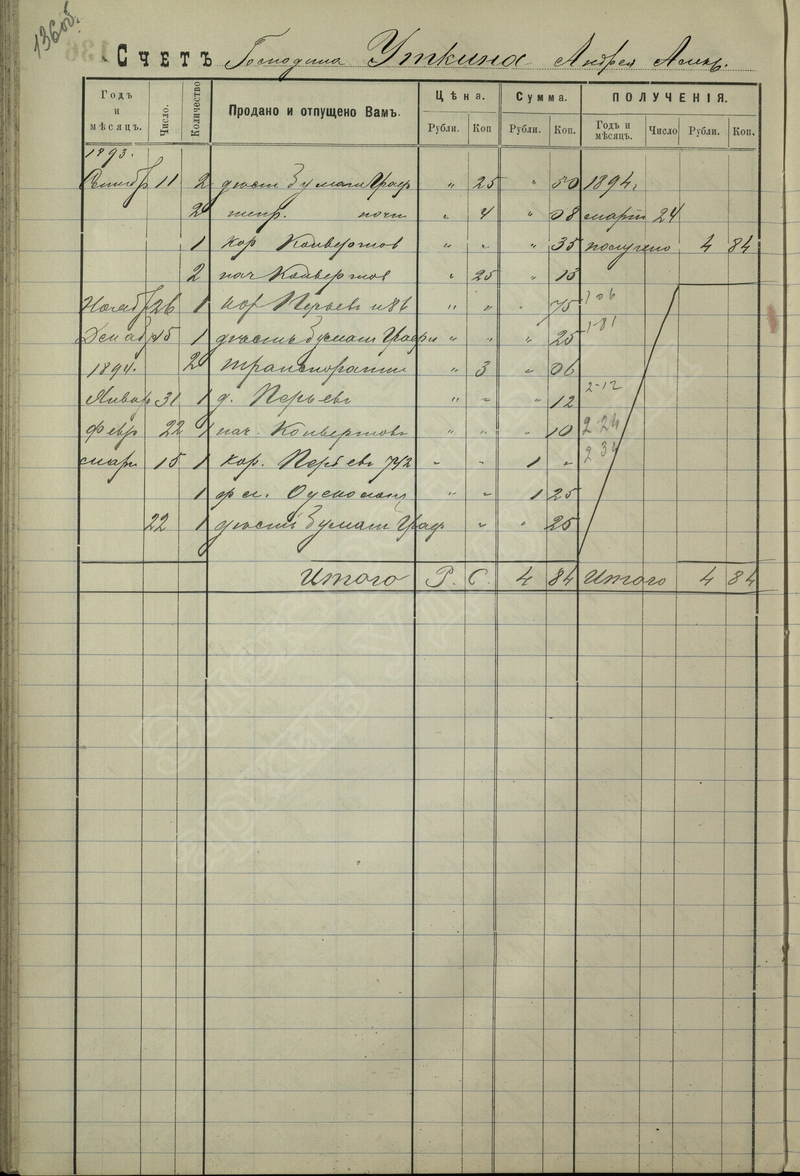 136 об.
Счетъ Господина Уткина Андрея Алекс.
Годъ и мѣсяцъ. Число. Количество Продано и отпущено Вамъ. Цѣна. Сумма. ПОЛУЧЕНІЯ.
Рубли. Коп Рубли. Коп. Годъ и мѣсяцъ. Число Рубли. Коп.
1893.
11 2 " 25 " 50 1894.
2 тетр. " 4 " 08 март 24
1 кор Конвертов " " " 35 получено 4 84
2 пач Конвертов " 25 " 15
Нояб 26 1 кор Перьев №86 " " " 75 1-06
15 1 " " " 25 1-31
1894. 2 " 3 " 06
Январ 31 1 д. Перьев " " " 12 2-12
Февр 22 1 пач. Конвертов " " " 10 2 24
март 15 1 кор. Перьев " " 1 " 2 34
1 фл. " " 1 25
22 1 " " 25
Итого Р. С. 4 84 Итого 4 84